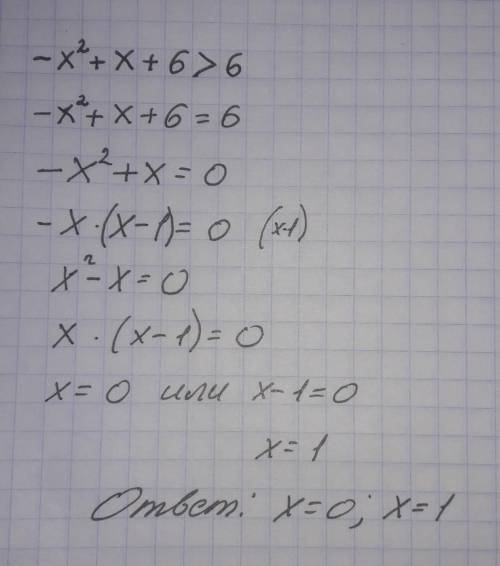 -x²+x+6>6
-x²+x+6=6
-x²+x=0
-x·(x-1)=0 (x-1)
x²-x=0
x·(x-1)=0
x=0 или x-1=0
x=1
Ответ: x=0; x=1